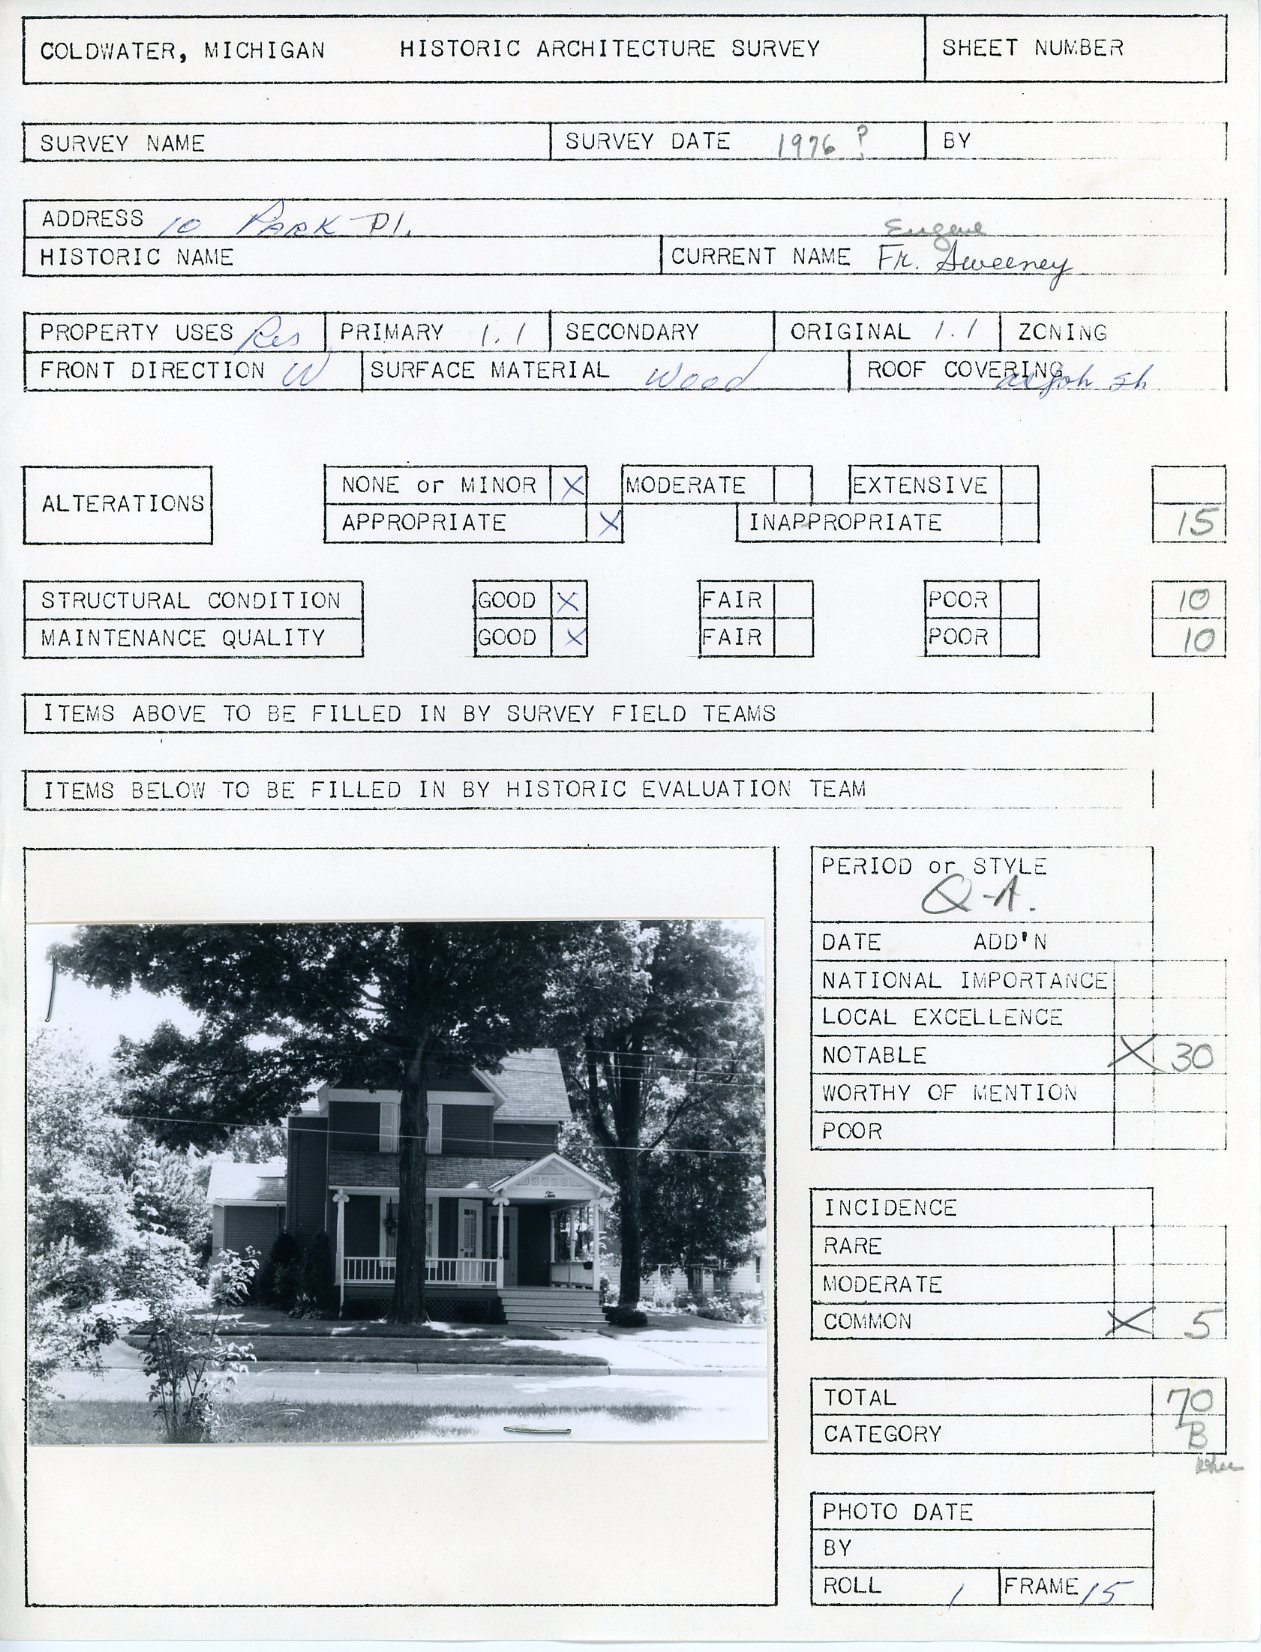 COLDWATER, MICHIGAN HISTORIC ARCHITECTURE SURVEY SHEET NUMBER
SURVEY NAME SURVEY DATE 1976 ? BY
ADDRESS 10 PARK Pl.
Eugene
HISTORIC NAME CURRENT NAME Fr. Sweeney
PROPERTY USES Res PRIMARY 1.1 SECONDARY ORIGINAL 1.1 ZONING
FRONT DIRECTION W SURFACE MATERIAL Wood ROOF COVERING asph sh
NONE or MINOR X MODERATE EXTENSIVE
ALTERATIONS
APPROPRIATE X INAPPROPRIATE 15
STRUCTURAL CONDITION GOOD X FAIR POOR 10
MAINTENANCE QUALITY GOOD X FAIR POOR 10
ITEMS ABOVE TO BE FILLED IN BY SURVEY FIELD TEAMS
ITEMS BELOW TO BE FILLED IN BY HISTORIC EVALUATION TEAM
PERIOD or STYLE
Q-A.
DATE ADD'N
NATIONAL IMPORTANCE
LOCAL EXCELLENCE
NOTABLE X 30
WORTHY OF MENTION
POOR
Ten
INCIDENCE
RARE
MODERATE
COMMON X 5
TOTAL 70
CATEGORY B
PHOTO DATE
BY
ROLL 1 FRAME 15